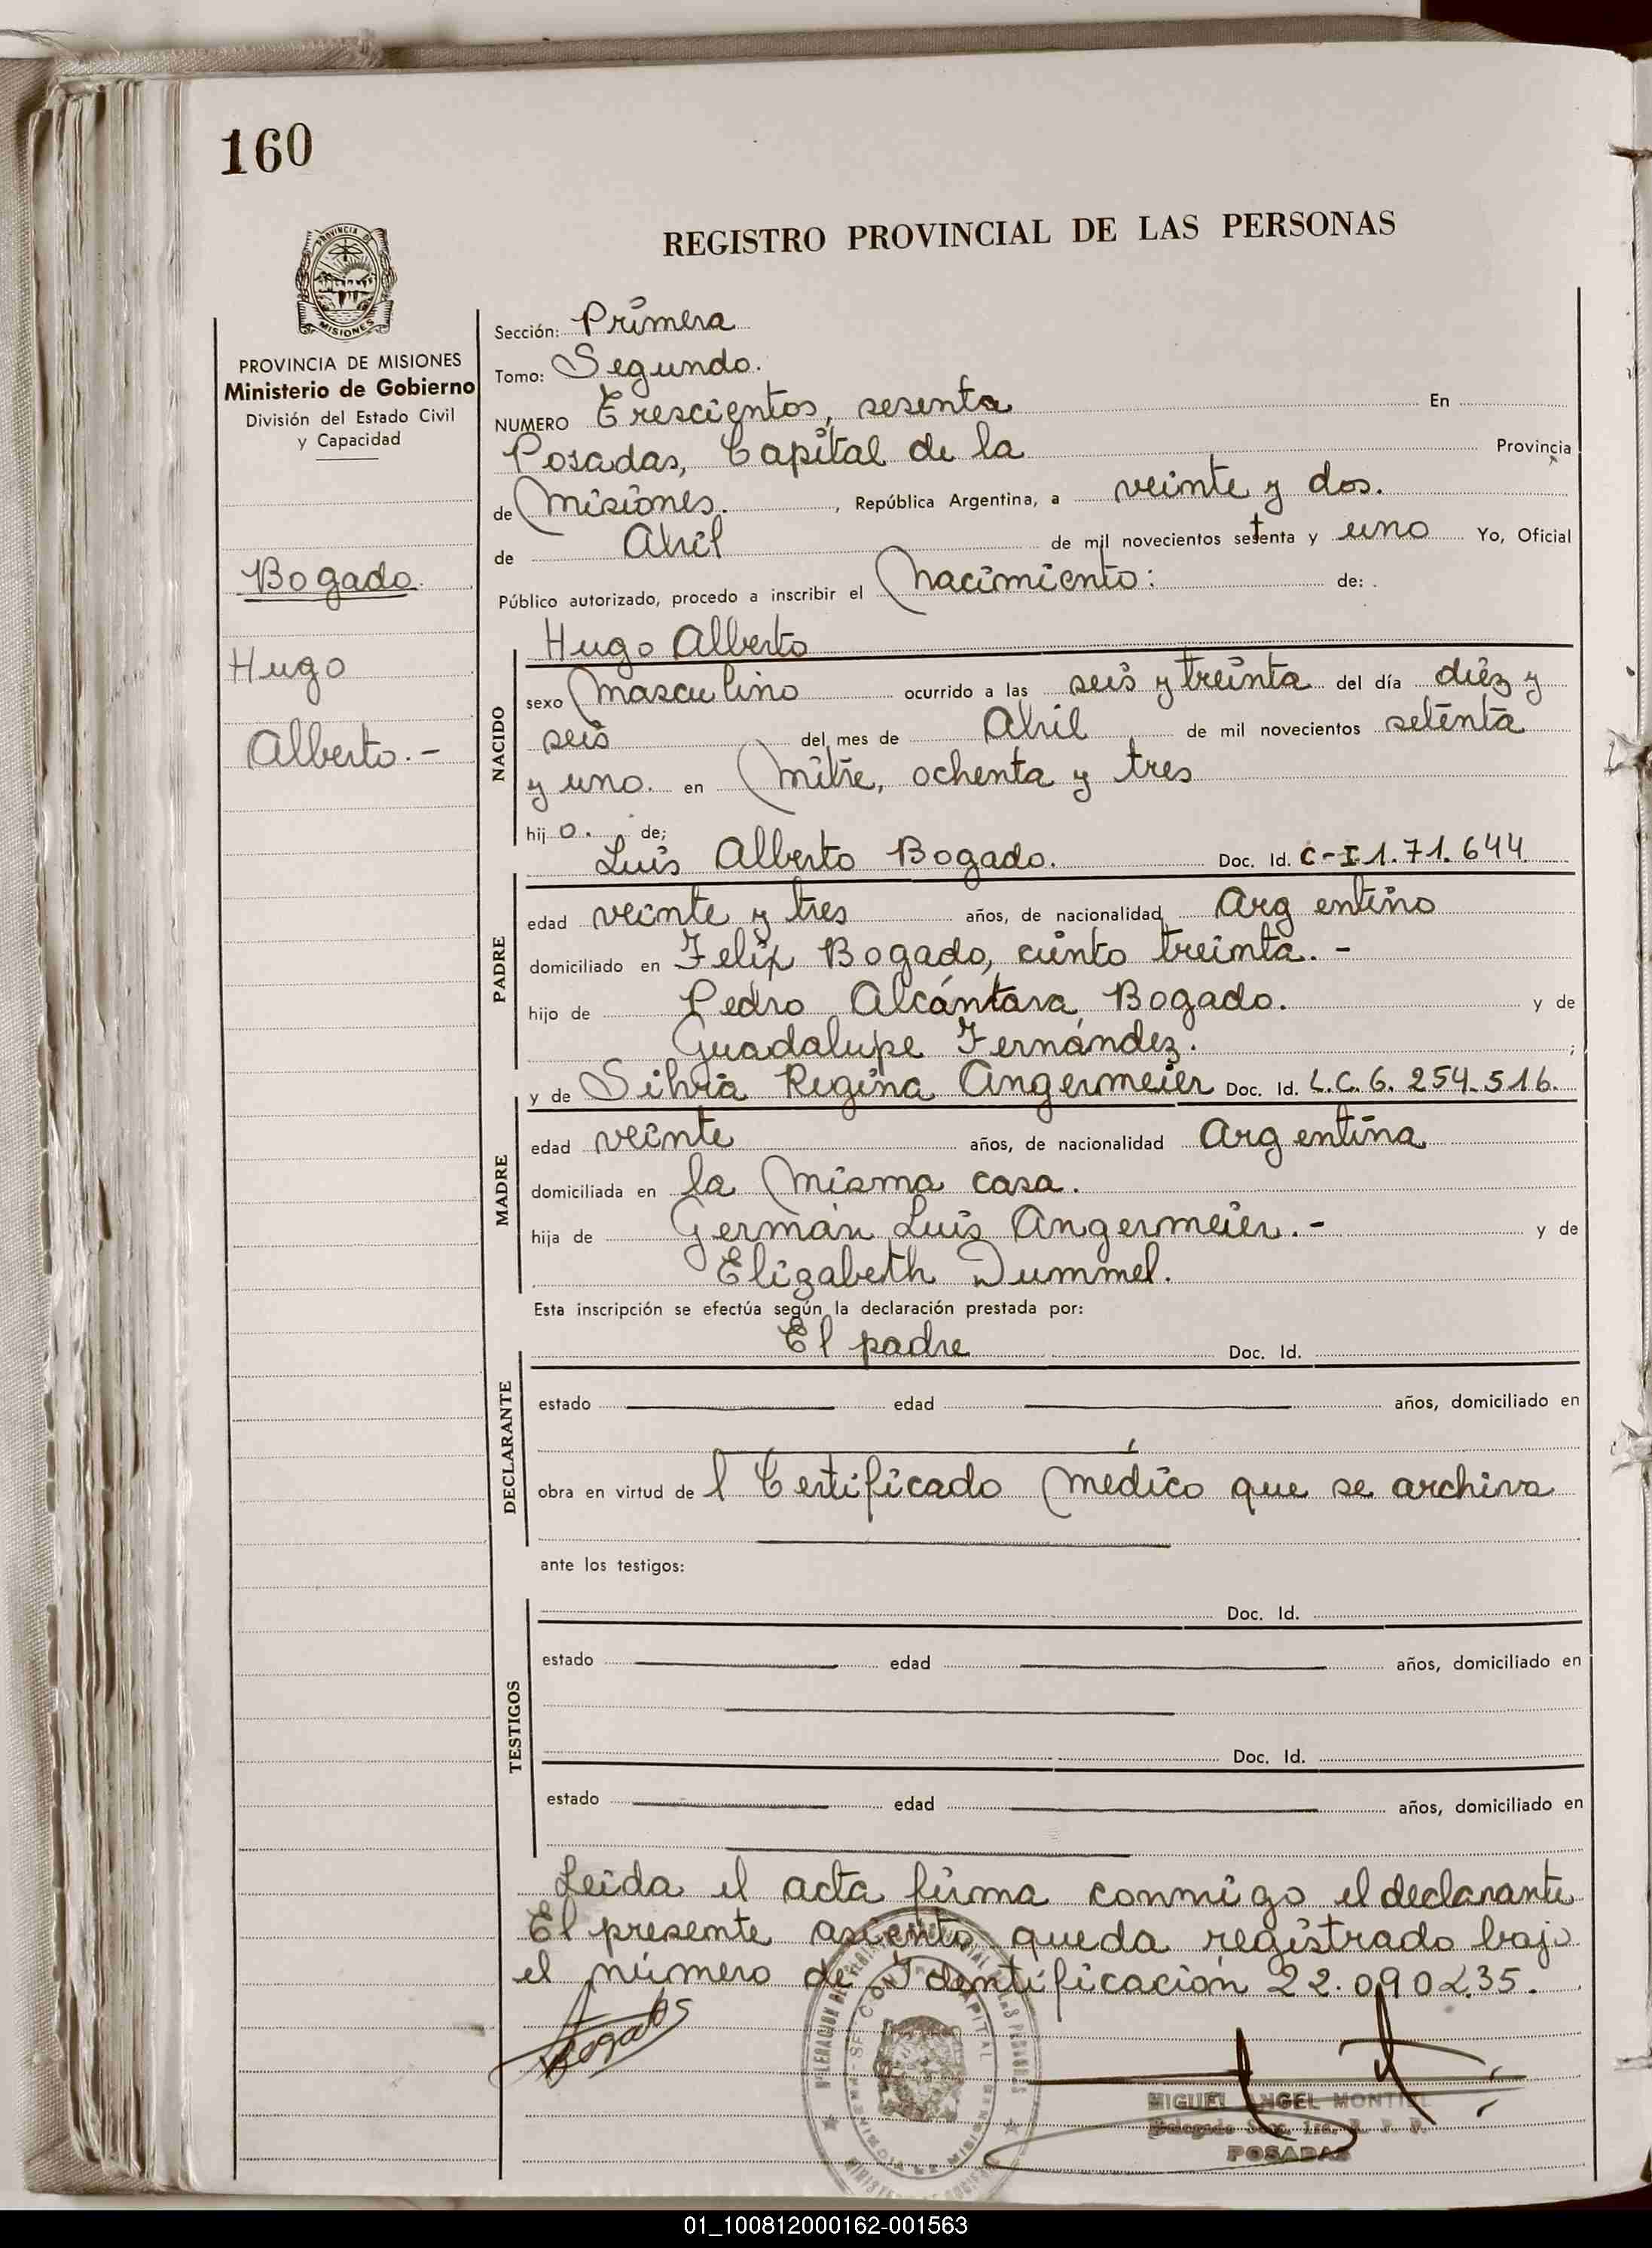 160
REGISTRO PROVINCIAL DE LAS PERSONAS
PROVINCIA DE
MISIONES
PROVINCIA DE MISIONES
Ministerio de Gobierno
División del Estado Civil
y Capacidad
Bogado.
Hugo
Alberto.-
Sección: Primera
Tomo: Segundo.
NUMERO Trescientos, sesenta En
Posadas, Capital de la Provincia
de Misiones. , República Argentina, a veinte y dos.
de Abril de mil novecientos setenta y uno Yo, Oficial
Público autorizado, procedo a inscribir el Nacimiento: de:
Hugo Alberto
NACIDO
sexo Masculino ocurrido a las seis y treinta del día diéz y
seis del mes de Abril de mil novecientos setenta
y uno. en Mitre, ochenta y tres
hij o. de;
Luis Alberto Bogado. Doc. Id. C-I 1.71.644
PADRE
edad veinte y tres años, de nacionalidad Argentino
domiciliado en Felix Bogado, ciento treinta.-
hijo de Pedro Alcántara Bogado. y de
Guadalupe Fernández. ;
y de Silvia Regina Angermeier Doc. Id. L.C. 6.254.516.
MADRE
edad veinte años, de nacionalidad Argentina
domiciliada en la misma casa.
hija de Germán Luis Angermeier.- y de
Elizabeth Dummel.
Esta inscripción se efectúa según la declaración prestada por:
El padre Doc. Id.
DECLARANTE
estado edad años, domiciliado en
obra en virtud de l Certificado Médico que se archiva
ante los testigos:
Doc. Id.
TESTIGOS
estado edad años, domiciliado en
Doc. Id.
estado edad años, domiciliado en
Leida el acta firma conmigo el declarante
El presente asiento queda registrado bajo
el número de Identificación 22.090.235.
Bogado
MIGUEL ANGEL MONTIEL
Delegado Secc. 1ra. R. P. P.
POSADAS
01_100812000162-001563